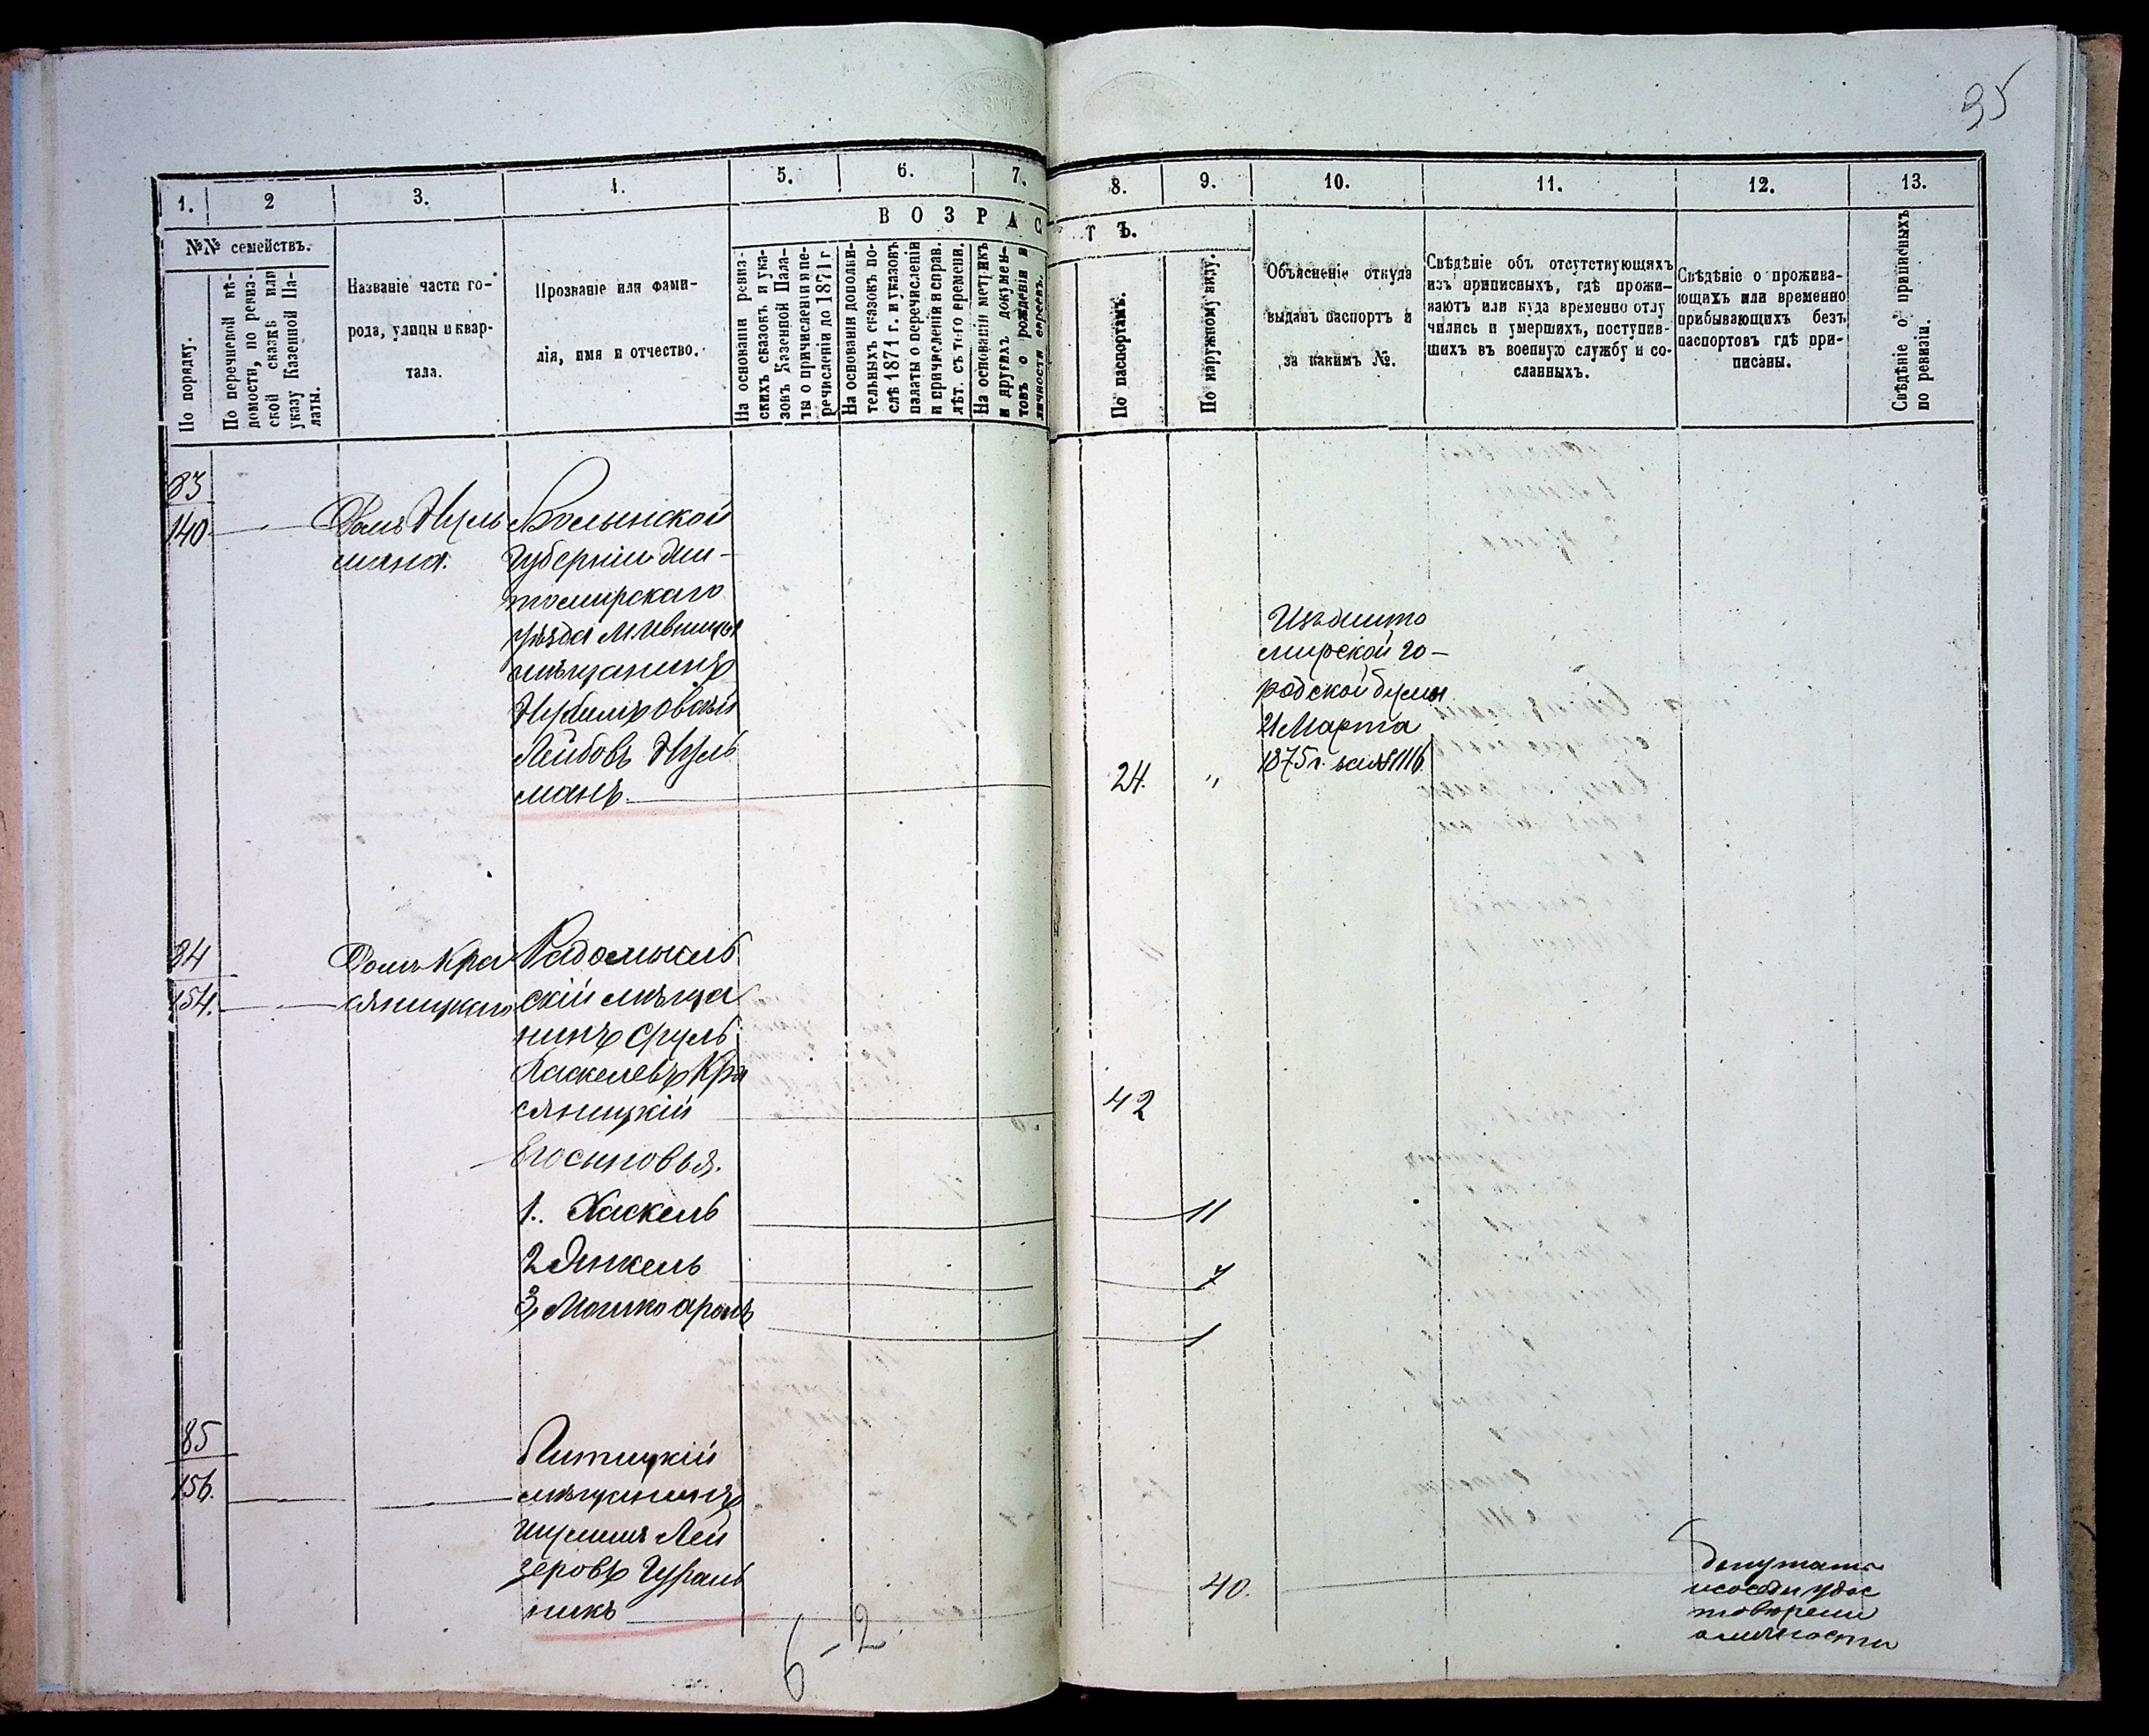 95
1.
2
3.
4.
5.
6.
7.
8.
9.
10.
11.
12.
13.
№№ семействъ.
ВОЗРАС
ТЪ.
По порядку.
По перечневой вѣ-
домости, по ревиз-
ской сказкѣ или
указу Казенной Па-
латы.
Названіе части го-
рода, улицы и квар-
тала.
Прозваніе или фами-
лія, имя и отчество.
На основаніи ревиз-
скихъ сказокъ и ука-
зовъ Казенной Пала-
ты о причисленіи и пе-
речисленіи до 1871 г
На основаніи дополни-
тельныхъ сказокъ по-
слѣ 1871 г. и указовъ
палаты о перечисленіи
и причисленіи и справ.
лѣт. съ того времени.
На основаніи метрикъ
и другихъ докумен-
товъ о рожденіи и
личности евреевъ.
По паспортамъ.
По наружному виду.
Объясненіе откуда
выданъ паспортъ и
за какимъ №.
Свѣдѣніе объ отсутствующихъ
изъ приписныхъ, гдѣ прожи-
ваютъ или куда временно отлу
чились и умершихъ, поступив-
шихъ въ военную службу и со-
сланныхъ.
Свѣдѣніе о прожива-
ющихъ или временно
прибывающихъ безъ
паспортовъ гдѣ при-
писаны.
Свѣдѣніе о приписныхъ
по ревизіи.
83
140
Домъ Нуль
мана.
Волынской
Губерніи Жи-
томирскаго
уѣзда
мѣщанинъ
Лейбовъ Нуль
манъ
24.
"
Изъ Жито
мирской го-
родской думы
21 Марта
1875 г. за № 1116
84
154.
Домъ Кра
сяницкаго
Радомысль
скій мѣща
нинъ Сруль
Хаскелевъ Кра
сяницкій
42
Его сыновья.
1. Хаскель
11
2 Янкель
7
3, Мошко аронъ
1
85
156.
мѣщанинъ
Лей
зеровъ Гурал
никъ
40.
депутаты
личности
6-2